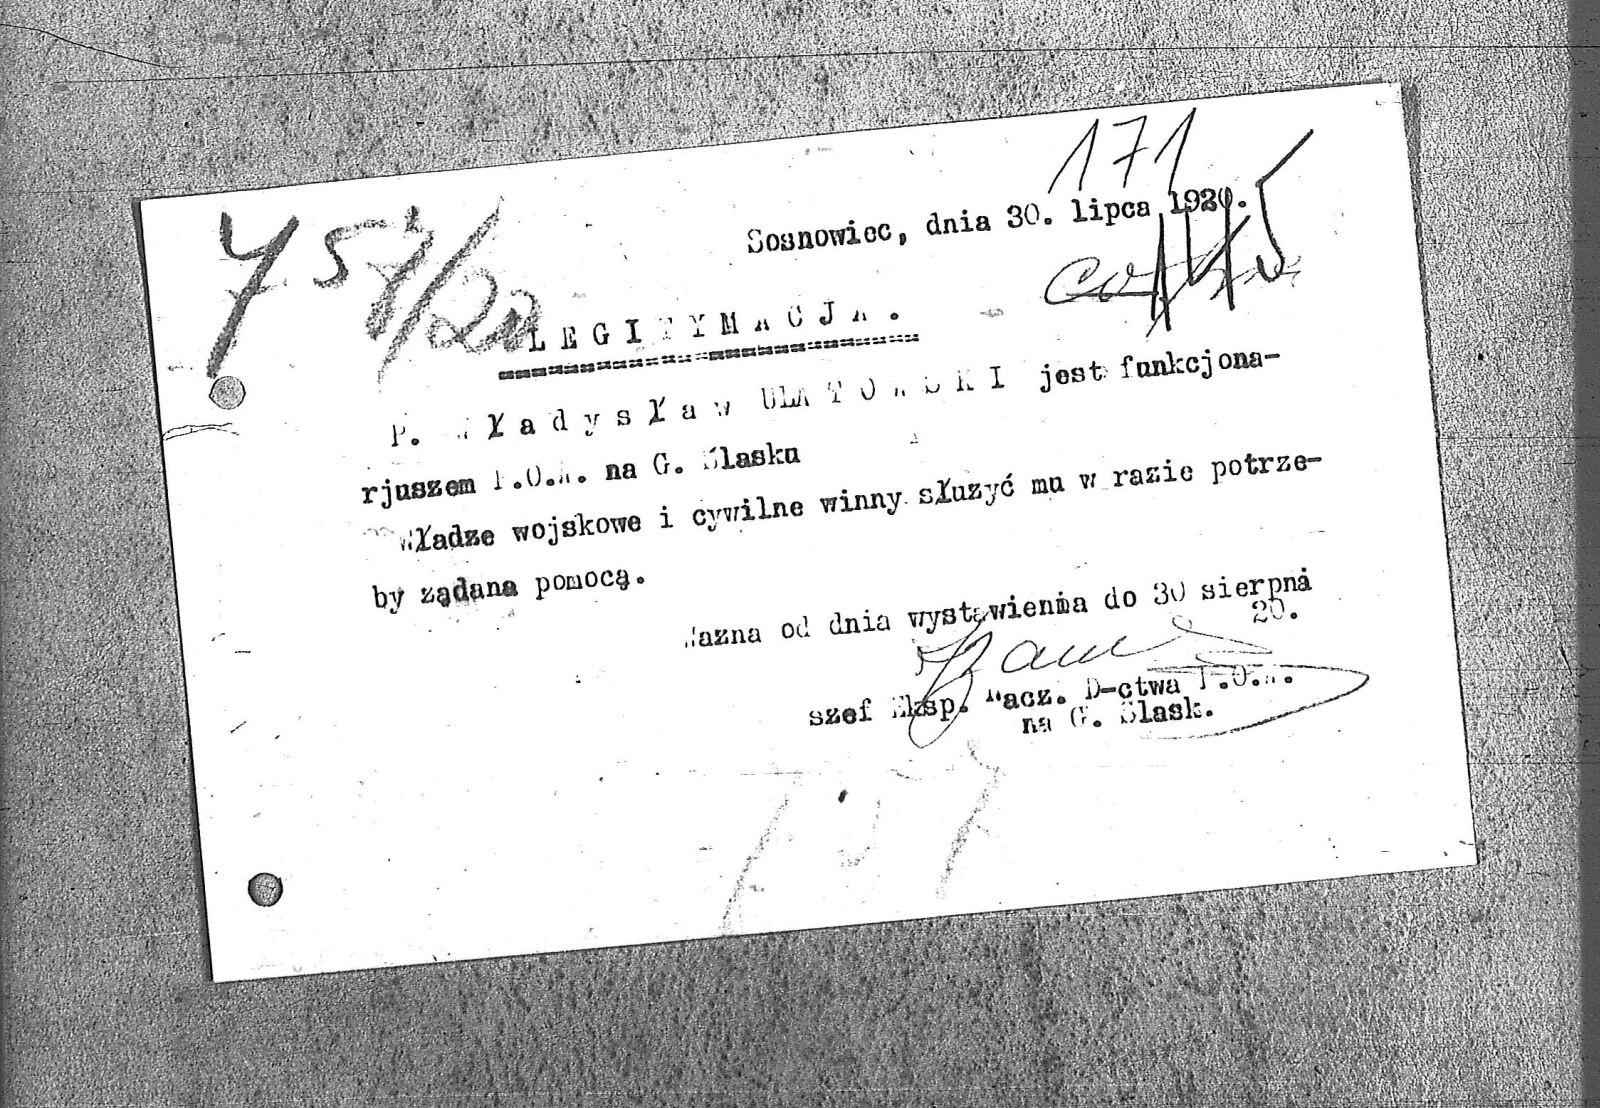 171
757/20
Sosnowiec, dnia 30. lipca 1920.
1145
LEGITYMACJA.
P. Władysław ULATOWSKI jest funkcjona-
rjuszem P.O.W. na G. Slasku
Władze wojskowe i cywilne winny słuzyć mu w razie potrze-
by ządana pomocą.
Wazna od dnia wystawienia do 30 sierpnia
20.
szef Eksp. Nacz. D-ctwa P.O.W.
na G. Slask.